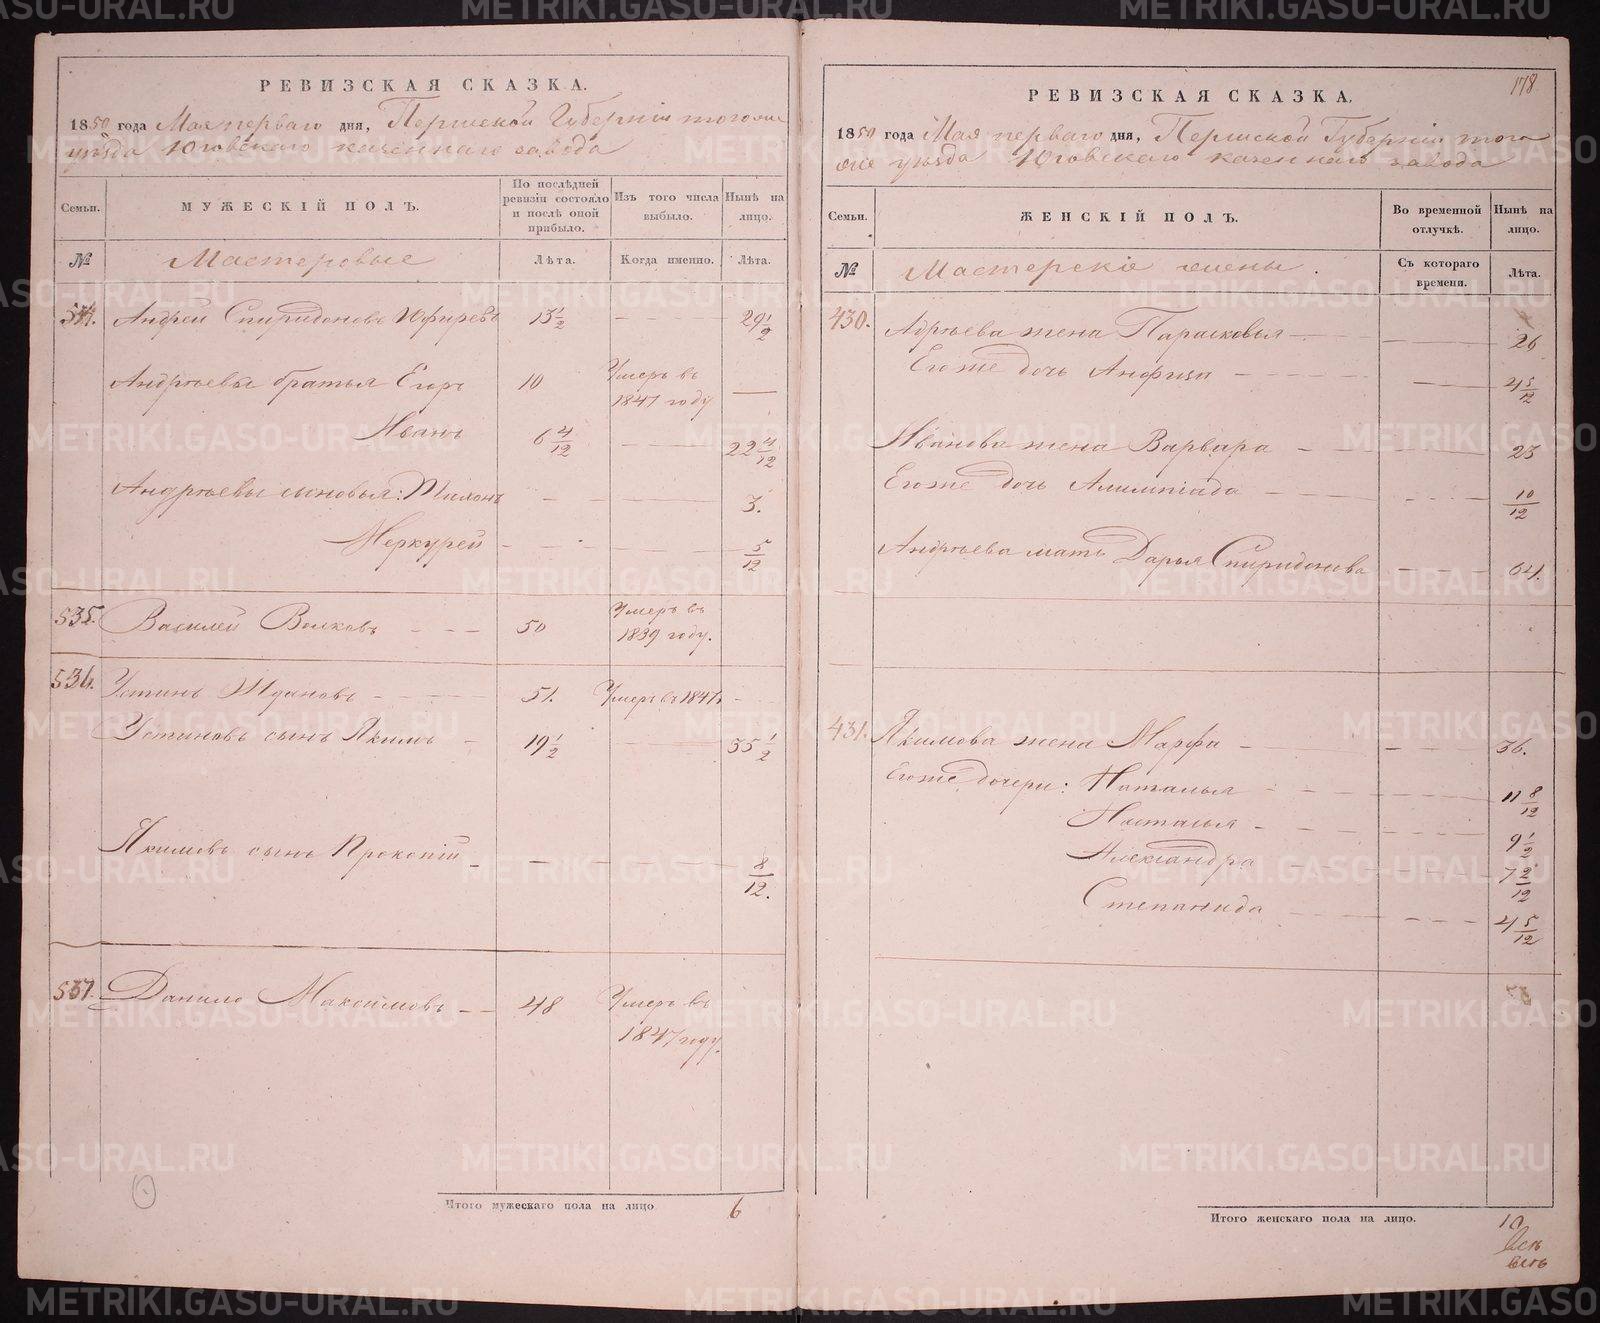 РЕВИЗСКАЯ СКАЗКА.
1850 года Мая перваго дня, Пермской Губерніи тогоже
уѣзда Юговскаго казеннаго завода
Семьи.
МУЖЕСКІЙ ПОЛЪ.
По послѣдней ревизіи состояло и послѣ оной прибыло.
Изъ того числа выбыло.
Нынѣ на лицо.
№
Мастеровые
Лѣта.
Когда именно.
Лѣта.
534. Андрей Спиридоновъ 13 1/2 29 1/2
Андрѣевы братья Егоръ 10 Умеръ въ
1847 году
Иванъ 6 4/12 22 4/12
Андрѣевы сыновья: Тихонъ 3.
Меркурей 5/12
535. Василей Волковъ 50 Умеръ въ
1839 году.
536. Устинъ Ждановъ 51. Умеръ въ 1847
Устиновъ сынъ Якимъ 19 1/2 35 1/2
Якимовъ сынъ Прокопій 8/12.
537. Данило Максимовъ 48 Умеръ въ
1847 году.
Итого мужескаго пола на лицо 6
178
РЕВИЗСКАЯ СКАЗКА.
1850 года Мая перваго дня, Пермской Губерніи того
же уѣзда Юговскаго казеннаго завода
Семьи.
ЖЕНСКІЙ ПОЛЪ.
Во временной отлучкѣ.
Нынѣ на лицо.
№
Мастерскіе жены.
Съ котораго времени.
Лѣта.
430. Андрѣева жена Парасковья 26
Егоже дочь Анфиза 4 5/12
Иванова жена Варвара 23
Егоже дочь Алимпіада 10/12
Андрѣева мать Дарья Спиридонова 64.
431. Якимова жена Марфа 36.
Егоже дочери: Наталья 11 8/12
Настасья 9 1/2
Александра 7 2/12
Степанида 4 5/12
Итого женскаго пола на лицо. 10
METRIKI.GASO-URAL.RU